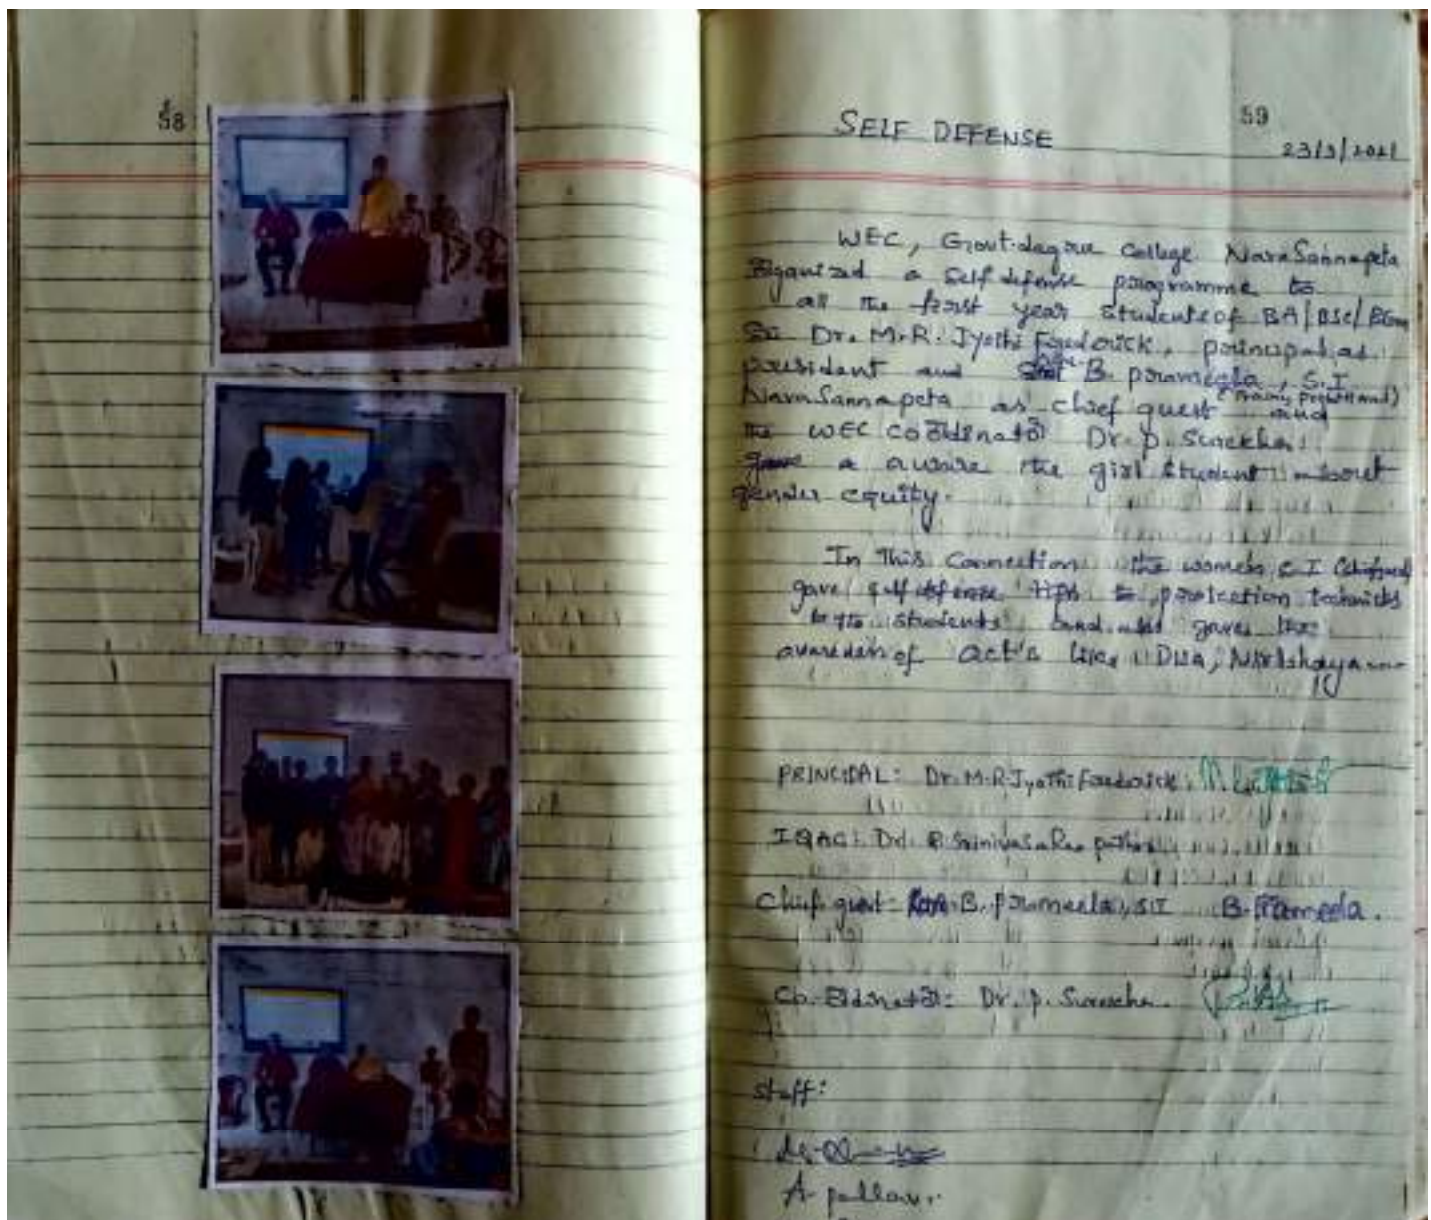 58
59
SELF DEFENSE
23/3/2021
WEC, Govt. degree College Narasannapeta
Organized a Self defense programme to
all the first year students of BA/BSC/BCom
Dr. M.R. Jyothi Frederick, principal as
president and B. prameela, S.I
Narasannapeta as chief guest and
the WEC Coordinator Dr. P. Surekha
gave a aware the girl student about
gender equity.
In This Connection the women S.I
gave self defense tips to protection technicks
to students and gave the
awareness of act's like DISA,
PRINCIPAL: Dr. M.R Jyothi Frederick
IQAC: Dr. Srinivasa Rao
Chief guest: B. Prameela, SI B. Prameela.
Co-ordinator: Dr. P. Surekha
Staff:
A. pallavi